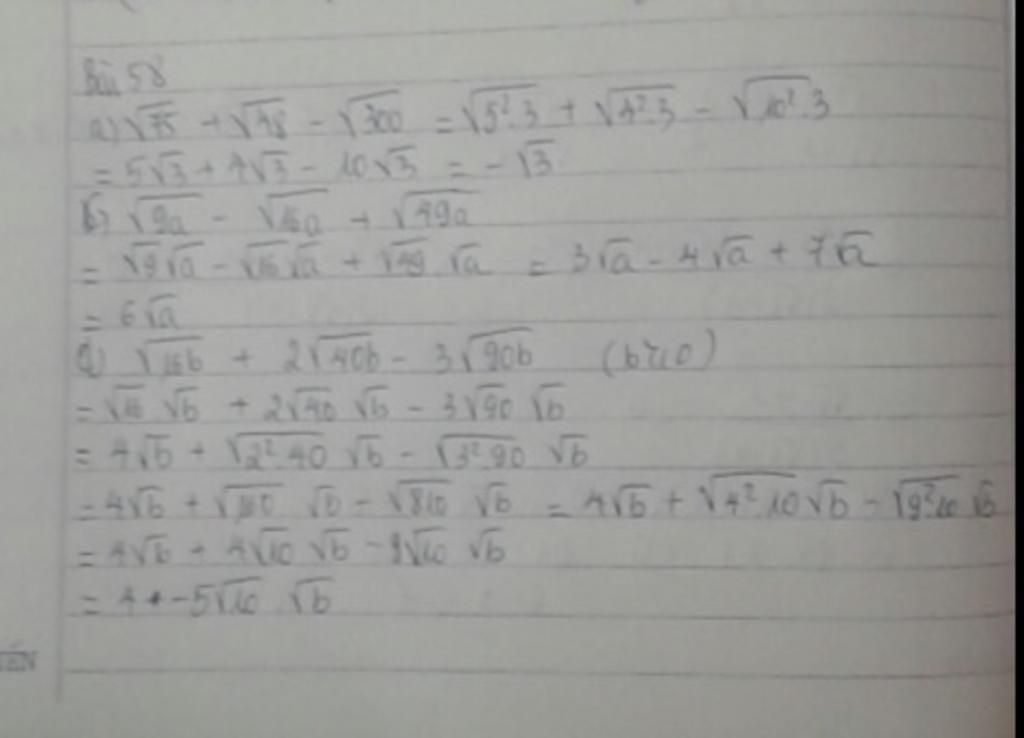 Bài 58
a) √75 + √48 - √300 = √5².3 + √4².3 - √10².3
= 5√3 + 4√3 - 10√3 = -√3
b) √9a - √16a + √49a
= √9 √a - √16 √a + √49 √a = 3√a - 4√a + 7√a
= 6√a
√16b + 2√40b - 3√90b (b≥0)
= √16 √b + 2√40 √b - 3√90 √b
= 4√b + √2².40 √b - √3².90 √b
= 4√b + √160 √b - √810 √b = 4√b + √4².10 √b - √9².10 √b
= 4√b + 4√10 √b - 9√10 √b
= 4 + -5√10 √b